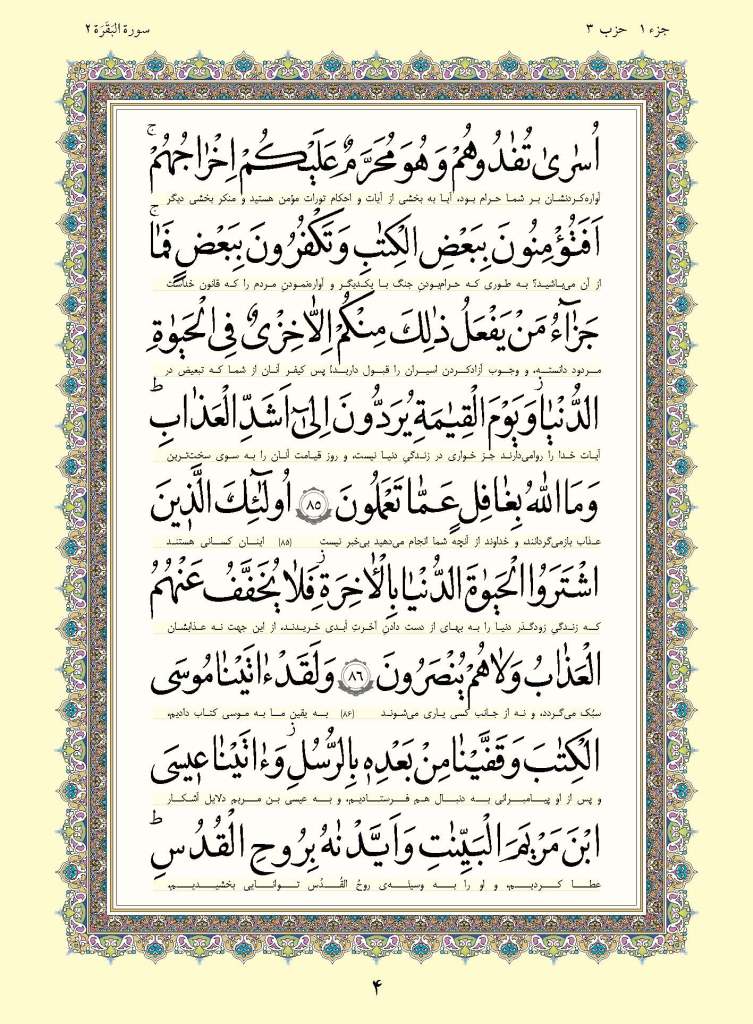 جزء ۱ حزب ۳ سورة البَقَرَة ۲
اُسٰرىٰ تُفٰدُوهُمْ وَ هُوَ مُحَرَّمٌ عَلَيْكُمْ اِخْرٰاجُهُمْ ۚ
آواره‌کردنشان بر شما حرام بود، آیا به بخشی از آیات و احکام تورات مؤمن هستید و منکر بخشی دیگر
اَفَتُؤْمِنُونَ بِبَعْضِ الْكِتٰبِ وَ تَكْفُرُونَ بِبَعْضٍ ۚ فَمٰا
از آن می‌باشید؟ به طوری که حرام‌بودنِ جنگ با یکدیگر و آواره‌نمودنِ مردم را که قانون خداست
جَزٰٓاءُ مَنْ يَفْعَلُ ذٰلِكَ مِنْكُمْ اِلّٰا خِزْىٌ فِى الْحَيٰوةِ
مردود دانسته، و وجوب آزادکردن اسیران را قبول دارید!؟ پس کیفر آنان از شما که تبعیض در
الدُّنْيٰا ۖ وَ يَوْمَ الْقِيٰمَةِ يُرَدُّونَ اِلىٰٓ اَشَدِّ الْعَذٰابِ ۗ
آیات خدا را روامی‌دارند جز خواری در زندگیِ دنیا نیست، و روز قیامت آنان را به سوی سخت‌ترین
وَ مَا اللّٰهُ بِغٰافِلٍ عَمّٰا تَعْمَلُونَ ۸۵ اُولٰٓئِكَ الَّذِينَ
عذاب بازمی‌گردانند، و خداوند از آنچه شما انجام می‌دهید بی‌خبر نیست (۸۵) اینان کسانی هستند
اشْتَرَوُا الْحَيٰوةَ الدُّنْيٰا بِالْاٰخِرَةِ ۖ فَلٰا يُخَفَّفُ عَنْهُمُ
کـه زندگیِ زودگذر دنیا را به بهای از دست دادنِ آخرتِ اَبدی خریدند، از این جهت نه عذابشان
الْعَذٰابُ وَ لٰا هُمْ يُنْصَرُونَ ۸۶ وَ لَقَدْ ءٰاتَيْنٰا مُوسَى
سبُک می‌گردد، و نه از جانب کسی یاری می‌شوند (۸۶) به یقین ما به موسی کتاب دادیم،
الْكِتٰبَ وَ قَفَّيْنٰا مِنْ بَعْدِهِ بِالرُّسُلِ ۖ وَ ءٰاتَيْنٰا عِيسَى
و پس از او پیامبرانی به دنبال هم فرستادیم، و به عیسی بن مریم دلایل آشکار
ابْنَ مَرْيَمَ الْبَيِّنٰتِ وَ اَيَّدْنٰهُ بِرُوحِ الْقُدُسِ ۗ
عطا کردیم، و او را به وسیله‌ی روحُ القُدُس توانایی بخشیدیم،
۴